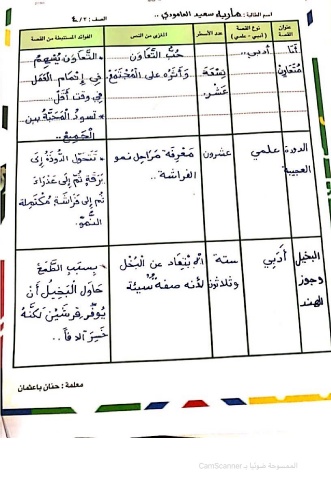 اسم الطالبة : مارياء سعيد العامودي الصف : ٤/٢
عنوان القصة
نوع القصة (أدبي - علمي)
عدد الأسطر
المغزى من النص
الفوائد المستنبطة من القصة
أنا متعاون
أدبي..
تسعة عشر.
حُبّ التَّعاوُن وَأثَرُه على المُجْتَمَع.
• التَّعاوُن يُسْهِمُ
في إتْمام العَمَل
في وقت أقَلّ..
• تسودُ المَحَبَّة بين
الجَميع..
الدودة العجيبة
علمي
عشرون
مَعْرِفة مَراحِل نمو
الفراشة..
• تتَحَوّل الدّودَةُ إلى
يَرَقةٍ ثُمّ إلى عَذْراء
ثُم إلى فَراشَةٍ مُكْتَمِلة
النُّموّ.
البخيل وجوز الهند
أَدَبي
ستة وثلاثون
الابْتِعاد عن البُخْل
لأنه صفة سيئة
بسبب الطَّمَع
حاوَل البَخيلُ أنْ
يُوَفِّر قِرشَيْن لكنَّهُ
خَسِرَ آلافاً..
معلمة : حنان باعثمان
الممسوحة ضوئيا بـ CamScanner